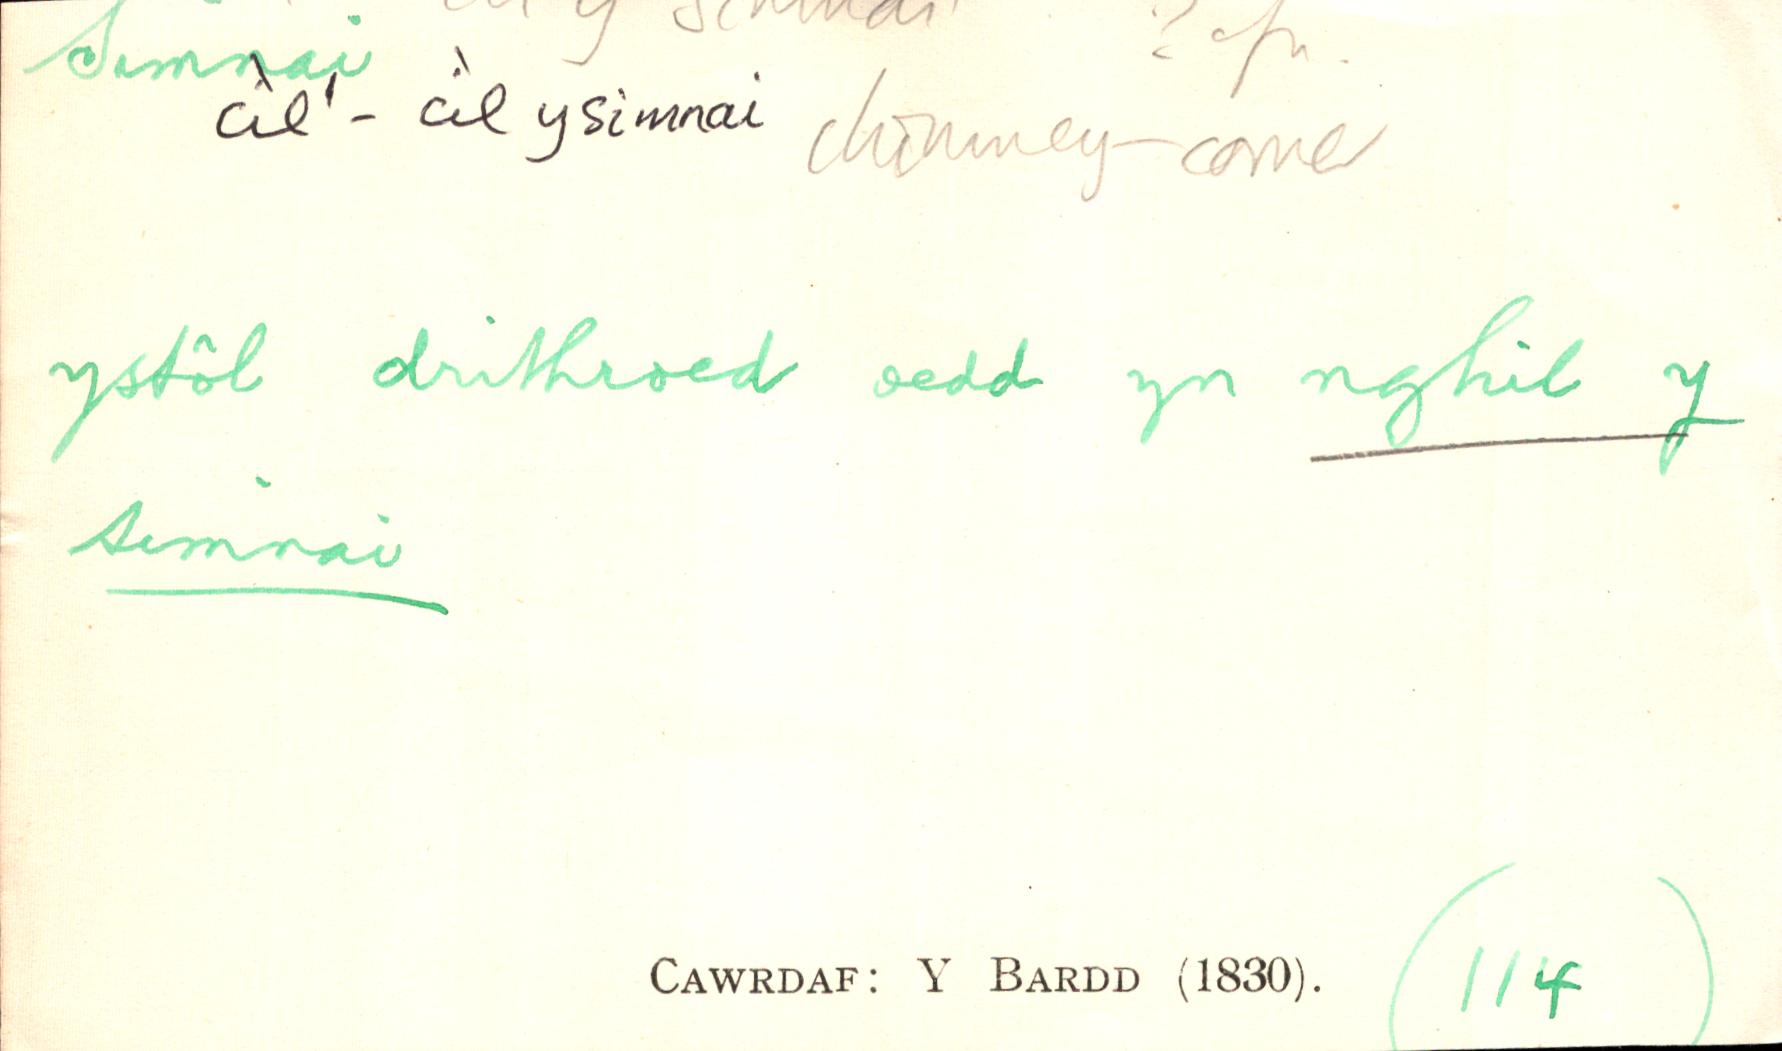 cil y simnai ? cfn.
Simnai
cil¹ - cil y simnai chimney-corner
ystôl drithroed oedd yn nghil y
simnai
CAWRDAF: Y BARDD (1830). (114)